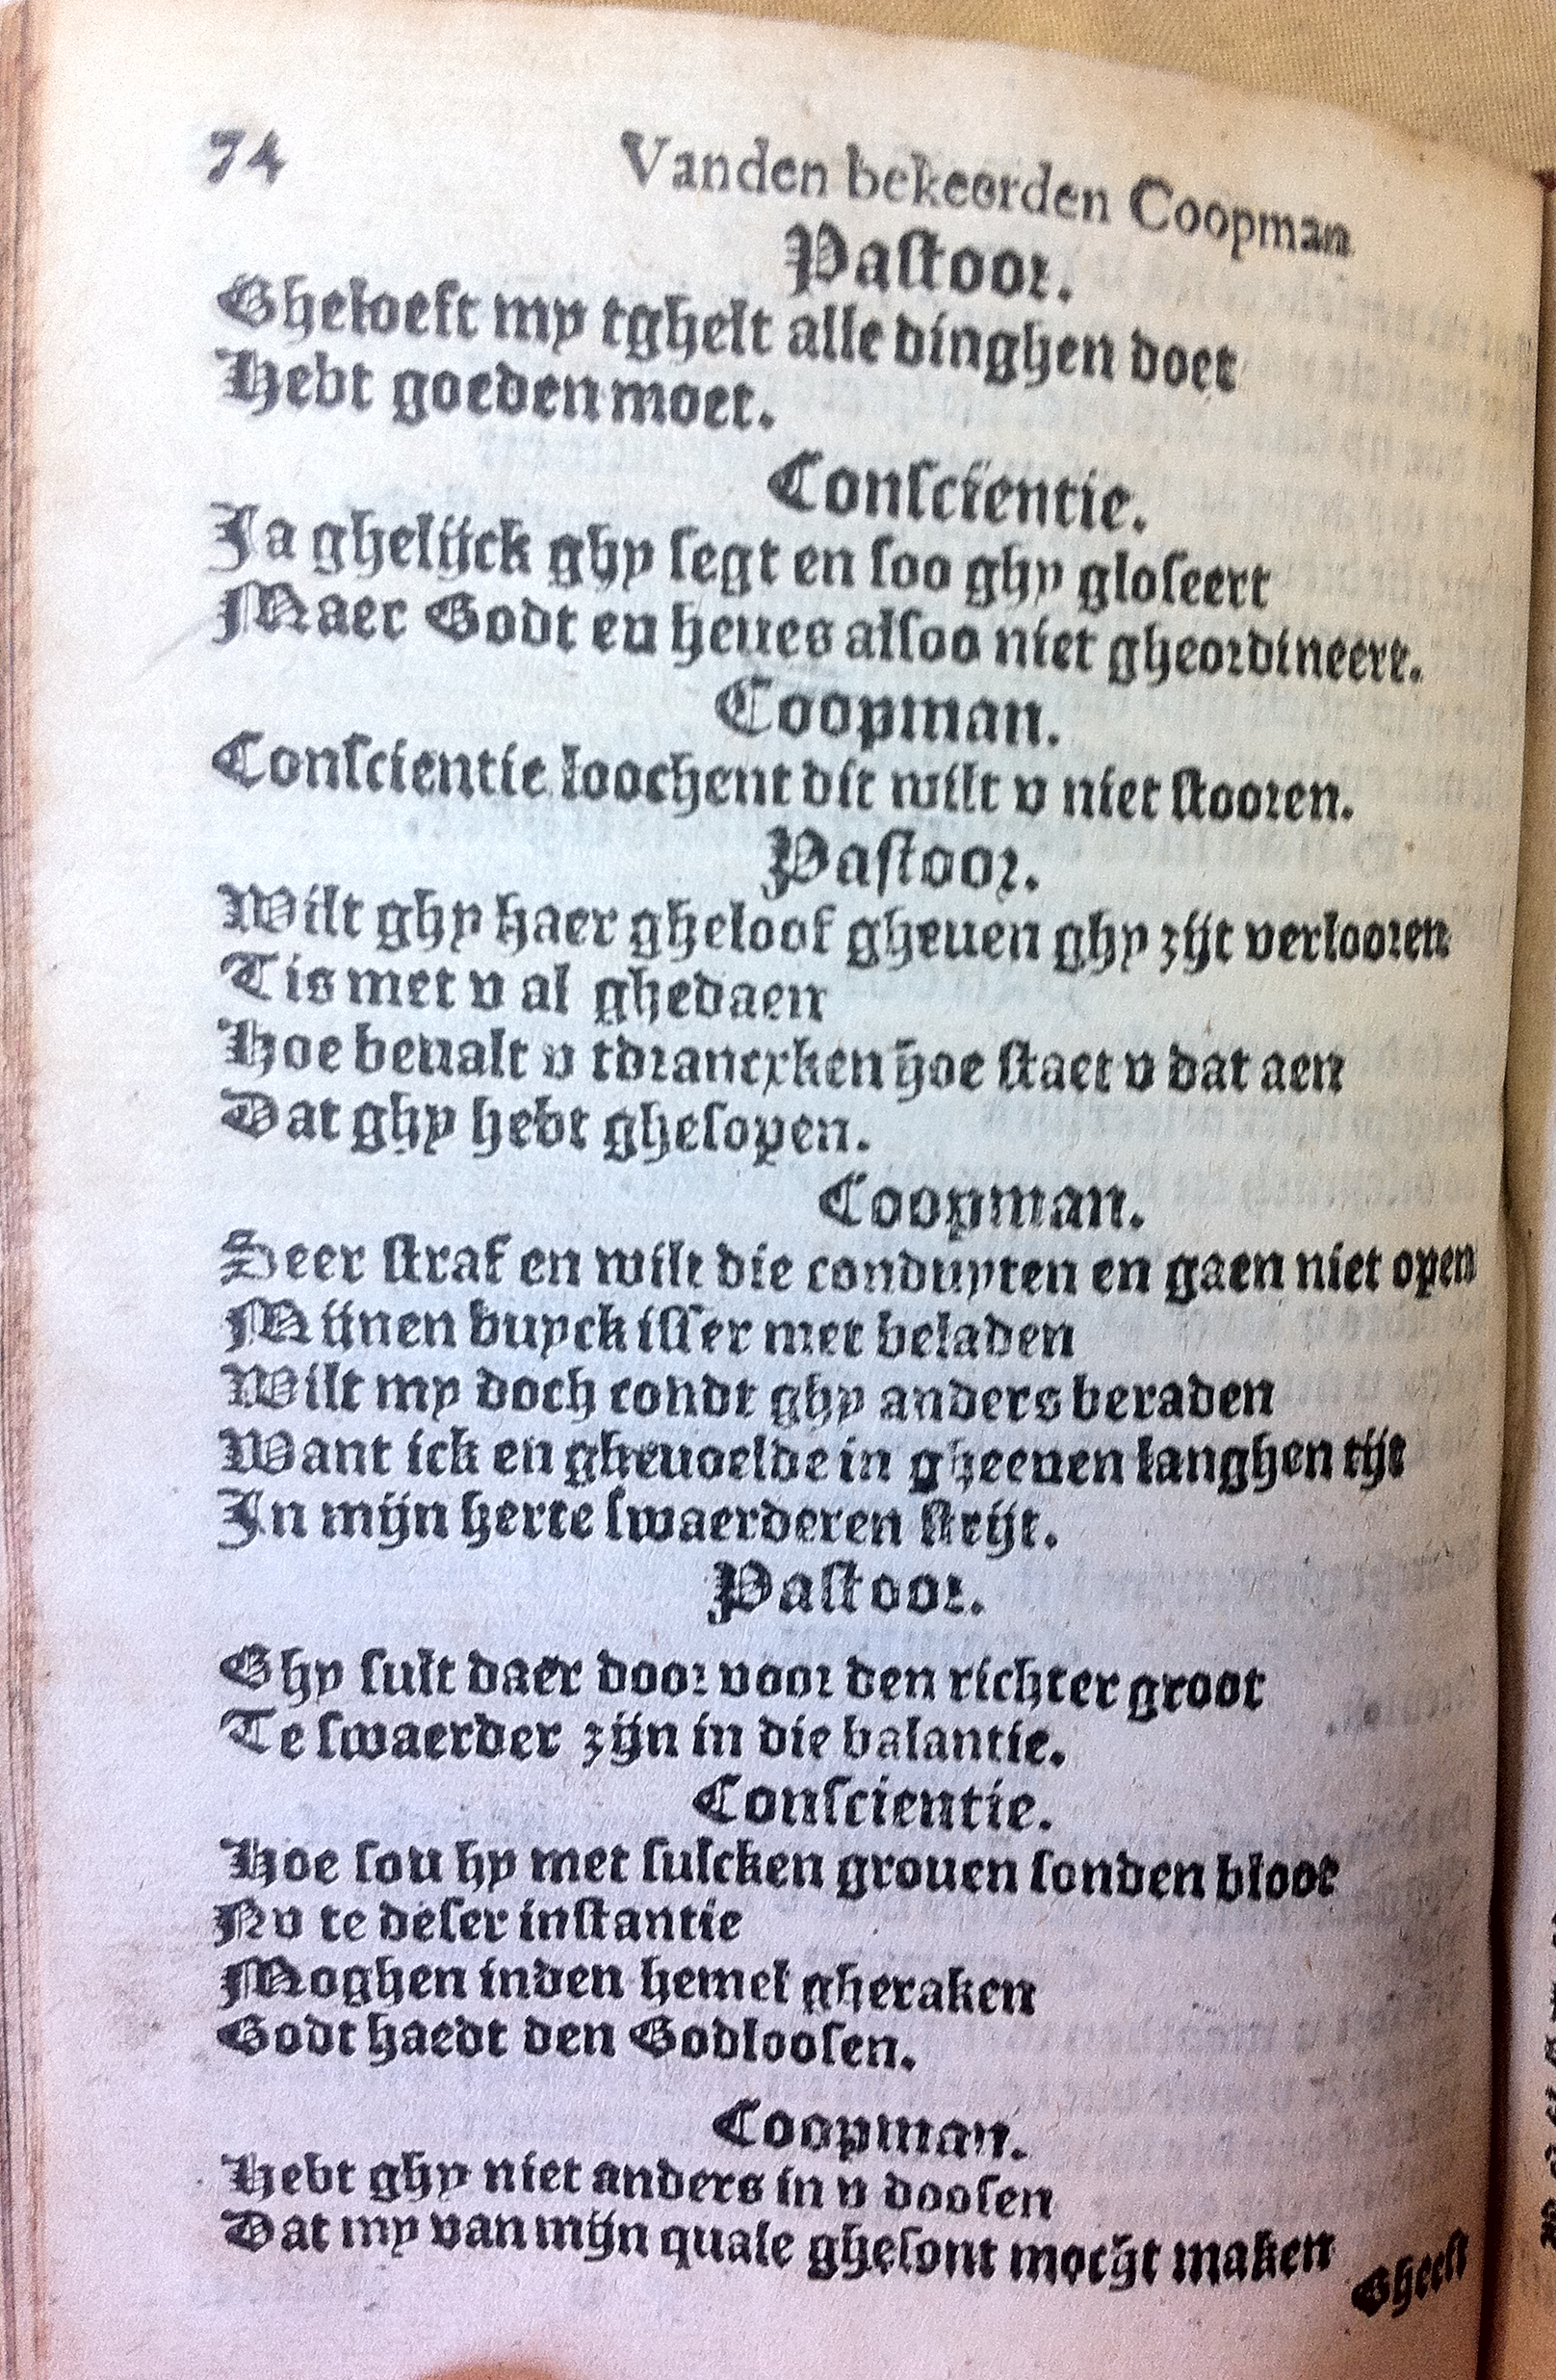 74 Vanden bekeerden Coopman
Paſtoor.
Gheloeft my tghelt alle dinghen doet
Hebt goeden moet.
Conſcientie.
Ja ghelijck ghy ſegt en ſoo ghy gloſeert
Maer Godt en heues alſoo niet gheordineert.
Coopman.
Conſcientie loochent dit wilt v niet ſtooren.
Paſtoor.
Wilt ghy haer gheloof gheuen ghy zijt verlooren
Tis met v al ghedaen
Hoe beualt v tdrancxken hoe ſtaet v dat aen
Dat ghy hebt gheſopen.
Coopman.
Seer ſtraf en wilt die conduyten en gaen niet open
Mijnen buyck iſſer met beladen
Wilt my doch condt ghy anders beraden
Want ick en gheuoelde in gheenen langhen tijt
In mijn herte ſwaerderen ſtrijt.
Paſtoor.
Ghy ſult daer door voor den richter groot
Te ſwaerder zijn in die balantie.
Conſcientie.
Hoe ſou hy met ſulcken grouen ſonden bloot
Nv te deſer inſtantie
Moghen inden hemel gheraken
Godt haedt den Godlooſen.
Coopman.
Hebt ghy niet anders in v dooſen
Dat my van mijn quale gheſont mocht maken
Gheeſt